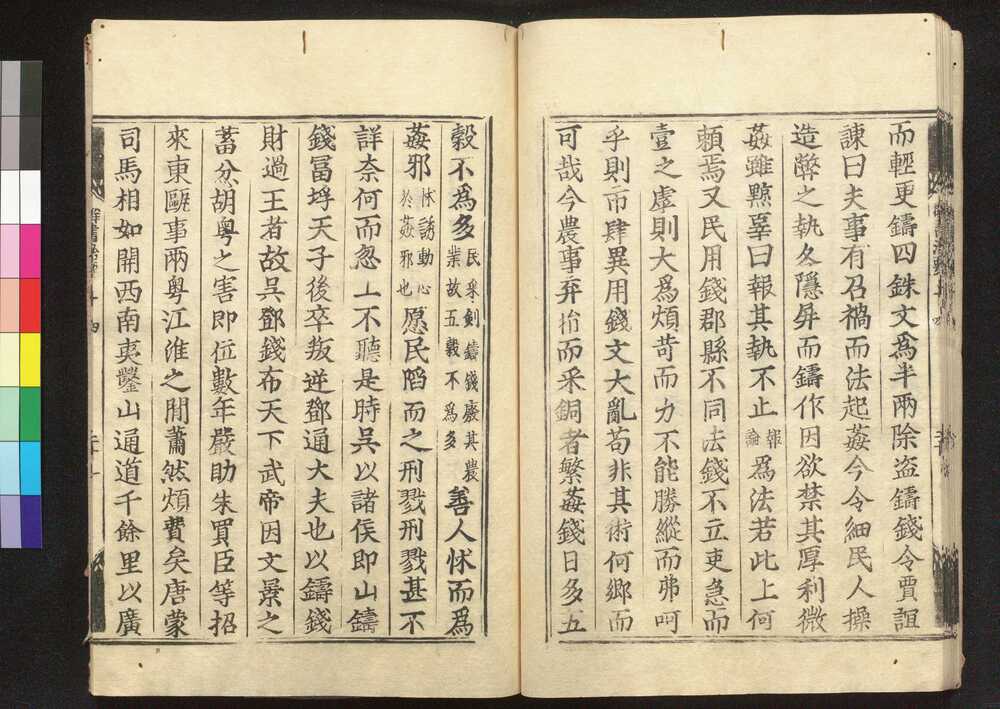 而輕更鑄四銖文爲半兩除盜鑄錢令賈誼
諫曰夫事有召禍而法起姦今令細民人操
造弊之執各隱屛而鑄作因欲禁其厚利微
姦雖黥辠日報其執不止報論爲法若此上何
賴焉又民用錢郡縣不同法錢不立吏急而
壹之虖則大爲煩苛而力不能勝縱而弗呵
乎則市肆異用錢文大亂苟非其術何鄉而
可哉今農事弃捐而采銅者繁姦錢日多五
穀不爲多民采銅鑄錢廢其農業故五穀不爲多善人怵而爲
姦邪怵誘動心於姦邪也愿民陷而之刑戮刑戮甚不
詳奈何而忽上不聽是時吳以諸侯即山鑄
錢冨埒天子後卒叛逆鄧通大夫也以鑄錢
財過王者故吳鄧錢布天下武帝因文景之
蓄忿胡粵之害即位數年嚴助朱買臣等招
來東甌事兩粵江淮之閒蕭然煩費矣唐蒙
司馬相如開西南夷鑿山通道千餘里以廣